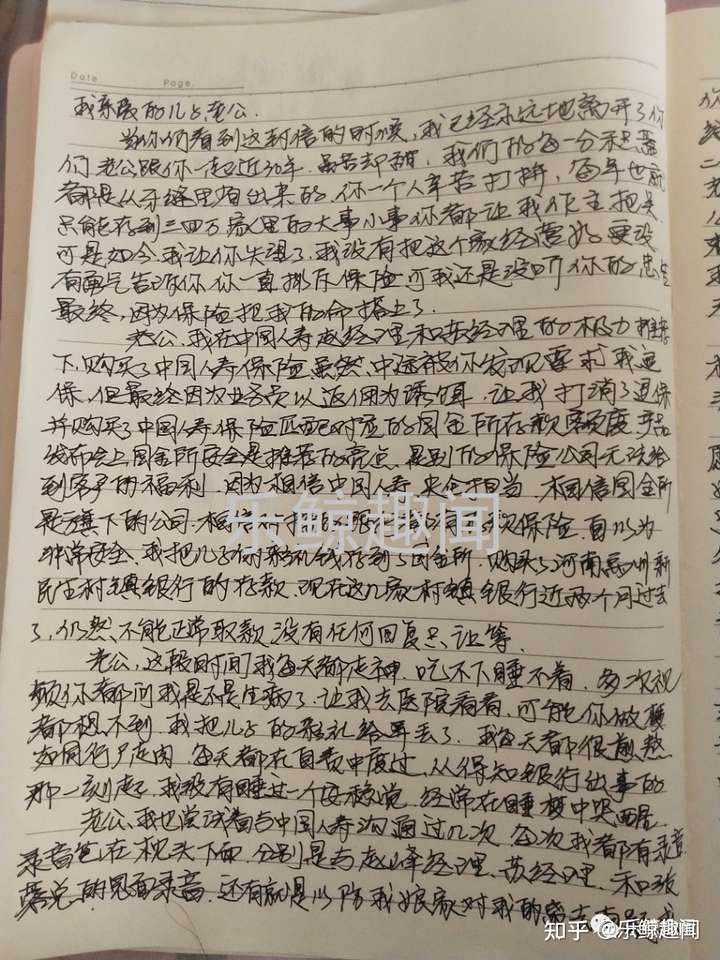 Date    Page
我亲爱的儿子老公.
当你们看到这封信的时候,我已经永远地离开了你
们 老公跟你一起近30年.虽苦却甜.我们的每一分积蓄
都是从牙缝里省出来的.你一个人辛苦打拼,每年也就
只能存到三四万家里的大事小事你都让我作主把关
可是如今我让你失望了.我没有把这个家经营好更没
有勇气告诉你你一直排斥保险可我还是没听你的忠告
最终,因为保险把我的命搭上了.
老公,我在中国人寿赵经理和苏经理的极力推荐
下.购买了中国人寿保险虽然中途被你发现要求我退
保.但最终因为业务员以返佣为诱饵.让我打消了退保
并购买了中国人寿保险匹配对应的国金所存款额度产品
发布会上国金所安全是推荐的亮点,是别的保险公司无法给
到客户的福利.因为相信中国人寿.央企担当.相信国金所
是旗下的公司.相信银行 存款保险.自以为
非常安全.我把儿子的彩礼钱存到了国金所.购买了河南禹州新
民生村镇银行的存款.现在这几家村镇银行近两个月过去
了,仍然不能正常取款没有任何回复只让等.
老公,这段时间我每天都走神.吃不下睡不着.多次视
频你都问我是不是生病了.让我去医院看看.可能你做梦
都想不到.我把儿子的彩礼给弄丢了.我每天都很煎熬
如同行尸走肉.每天都在自责中度过.从得知银行出事的
那一刻起.我没有睡过一个安稳觉.经常在睡梦中哭醒.
老公、我也尝试着与中国人寿沟通过几次.每次我都有录音
录音笔在枕头下面.分别是与赵峰经理、苏经理、和张
总的见面录音.还有就是以防我娘家对我的
乐鲸趣闻
知乎 @乐鲸趣闻